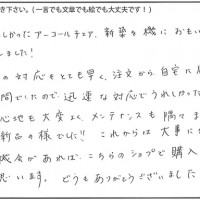 き下さい。(一言でも文章でも絵でも大丈夫です！)
しかったアーコールチェア、新築を機におもい
しました！
の対応もとても早く、注文から自宅に
間でしたので迅速な対応でうれしかった
心地も大変よく、メンテナンスも隅々ま
新品の様でした!! これからは大事に
機会があれば、こちらのショップで購入
思います。どうもありがとうございました